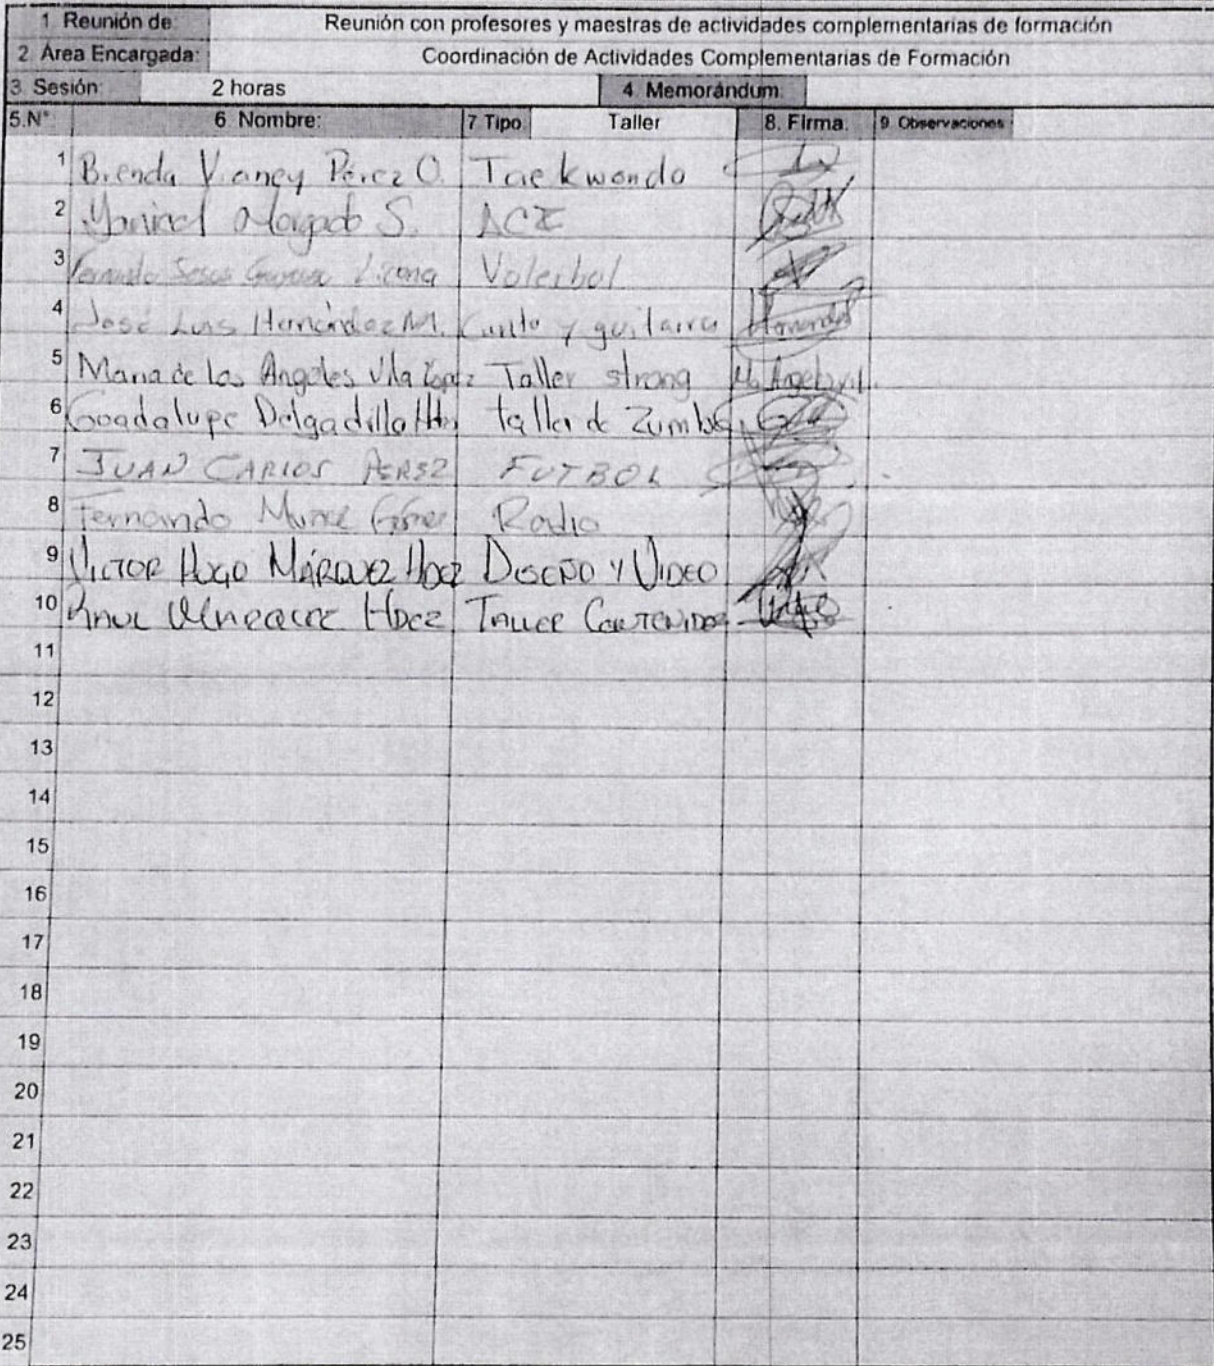 1. Reunión de: Reunión con profesores y maestras de actividades complementarias de formación
2. Área Encargada: Coordinación de Actividades Complementarias de Formación
3. Sesión: 2 horas 4. Memorándum:
5.N° 6. Nombre: 7. Tipo: Taller 8. Firma: 9. Observaciones
1 Brenda Vianey Pérez O. Taekwondo
2 Morgado S.
3 Voleibol
4 José Luis Hernández M. Canto y guitarra Hernández
5 Maria de los Angeles Vila López Taller strong
6 Guadalupe Delgadillo Hdz taller de Zumba
7 JUAN CARLOS PEREZ FUTBOL
8 Fernando Radio
9 VICTOR HUGO MÁRQUEZ HDEZ DISEÑO Y VIDEO
10 HDEZ TALLER CONTENIDOS
11
12
13
14
15
16
17
18
19
20
21
22
23
24
25